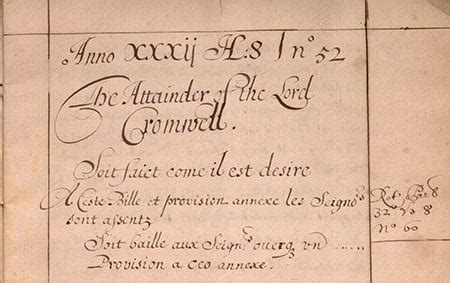 Anno XXXij H:8 / no 52
The Attainder of the Lord
Cromwell.
Soit faict come il est desire
A Ceste Bille et provision annexe les Seignors
sont assentz
Soit baille aux Seigns ouerq vn ......
Provision a ceo annexe.
32 No 8
No 60